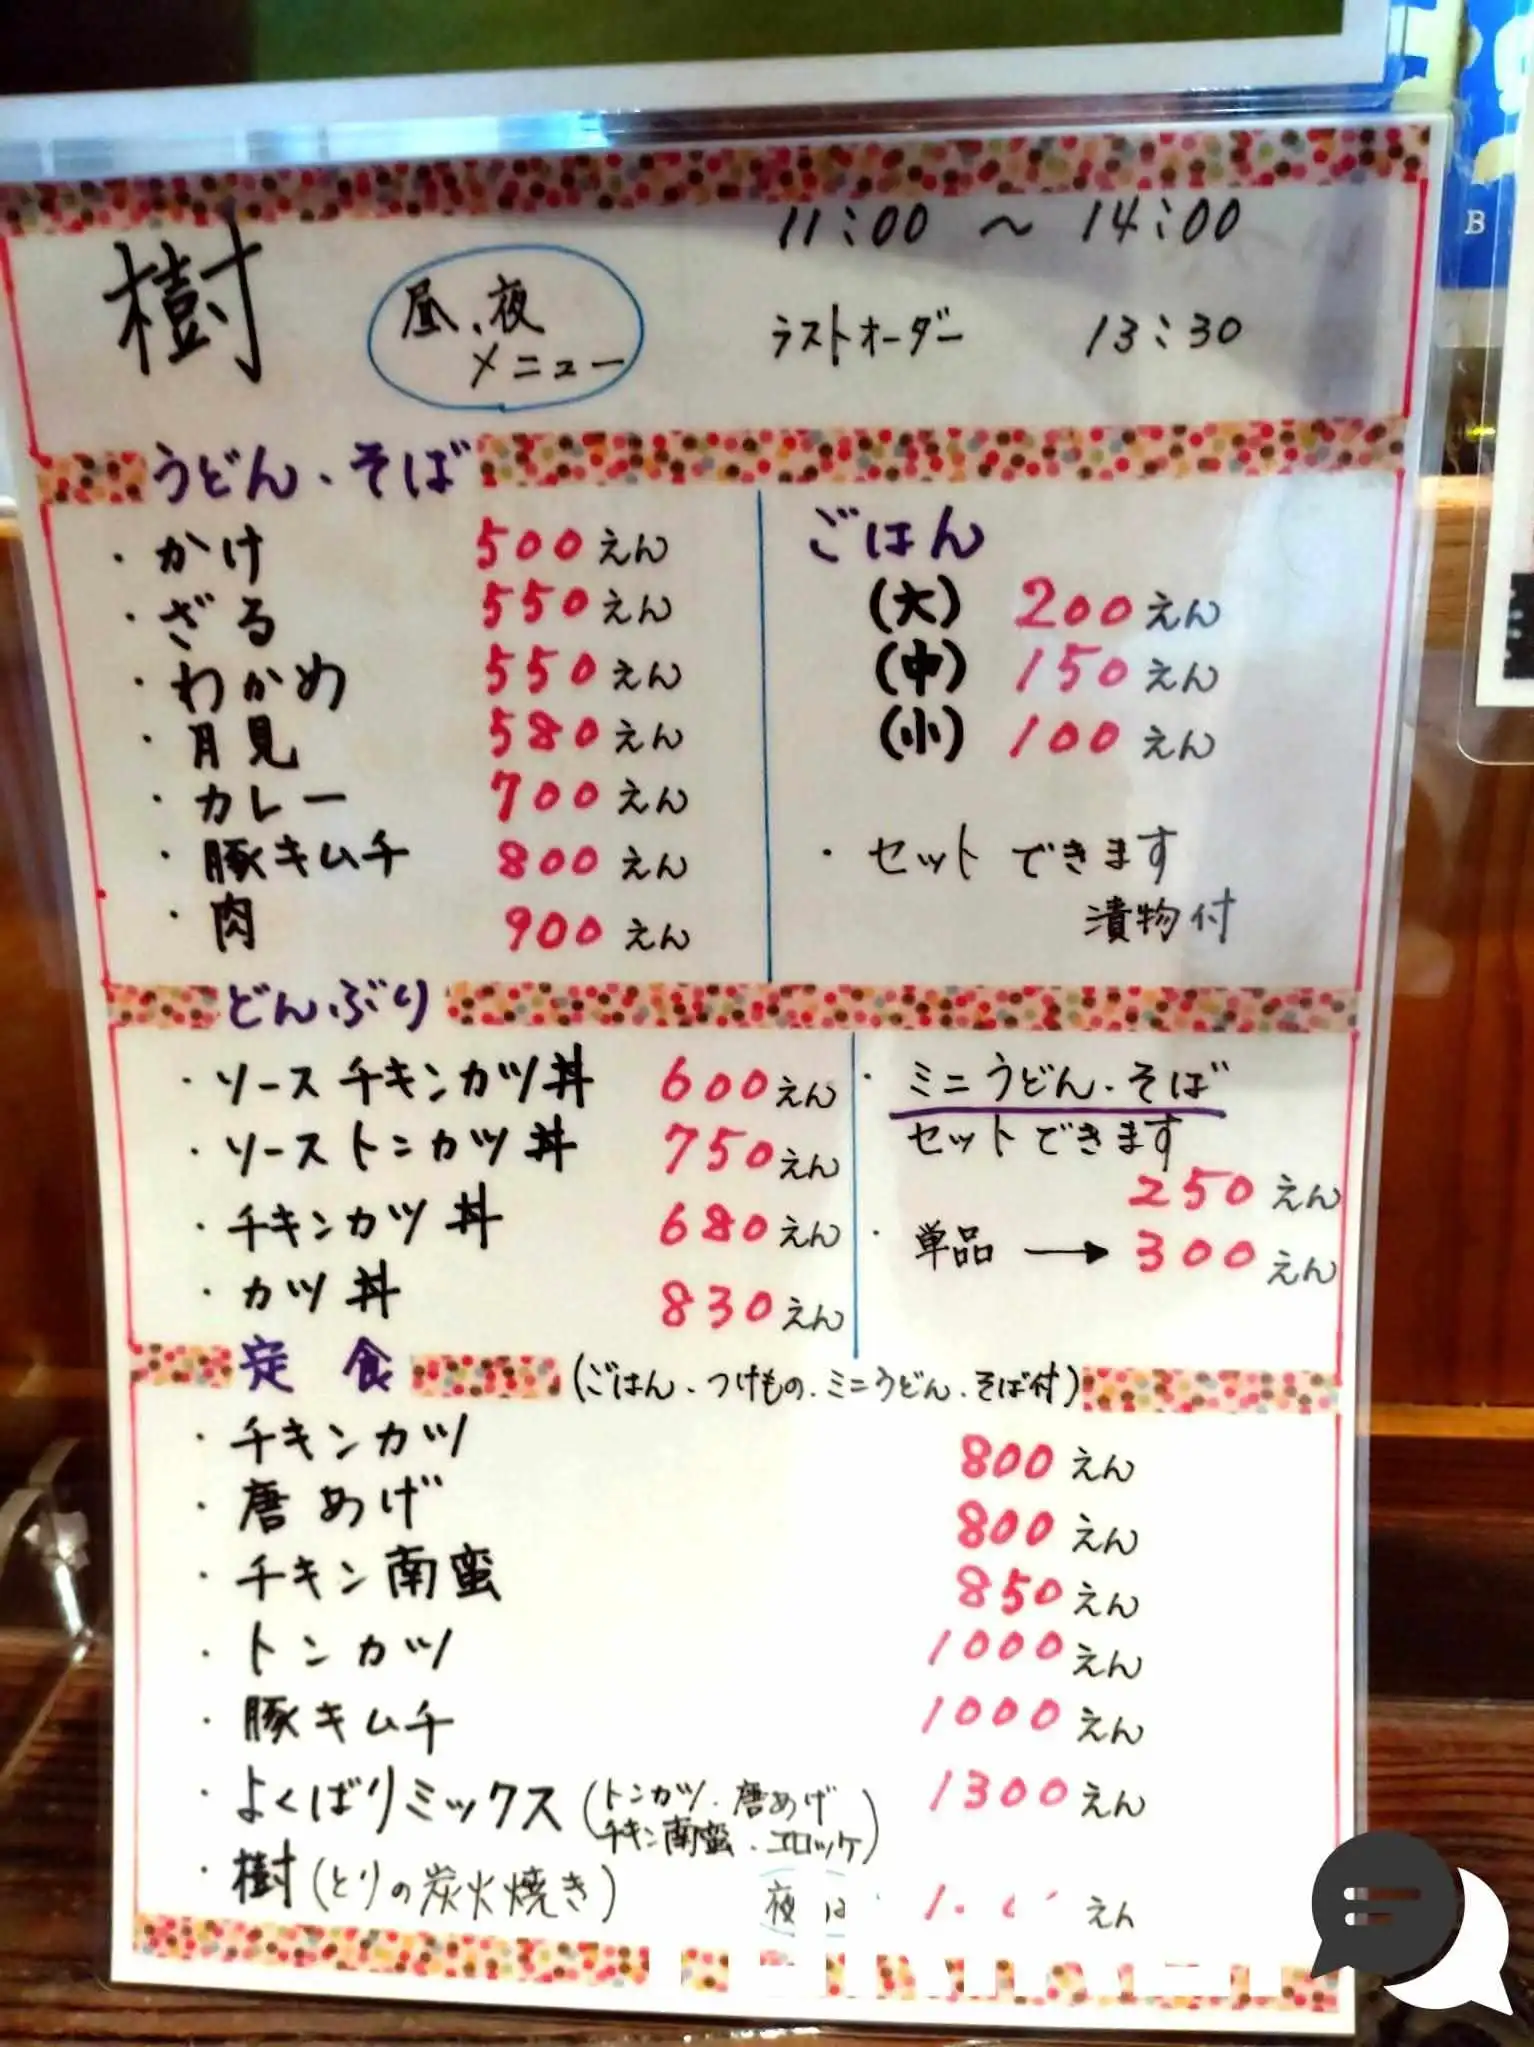 樹
昼、夜
メニュー
11:00 〜 14:00
ラストオーダー 13:30
うどん・そば
・かけ 500えん
・ざる 550えん
・わかめ 550えん
・月見 580えん
・カレー 700えん
・豚キムチ 800えん
・肉 900えん
ごはん
(大) 200えん
(中) 150えん
(小) 100えん
・セットできます
漬物付
どんぶり
・ソースチキンカツ丼 600えん
・ソーストンカツ丼 750えん
・チキンカツ丼 680えん
・カツ丼 830えん
・ミニうどん・そば
セットできます
250えん
・単品 → 300えん
定食 (ごはん・つけもの・ミニうどん・そば付)
・チキンカツ 800えん
・唐あげ 800えん
・チキン南蛮 850えん
・トンカツ 1000えん
・豚キムチ 1000えん
・よくばりミックス (トンカツ・唐あげ 1300えん
チキン南蛮・エロッケ)
・樹 (とりの炭火焼き) 夜は えん
B